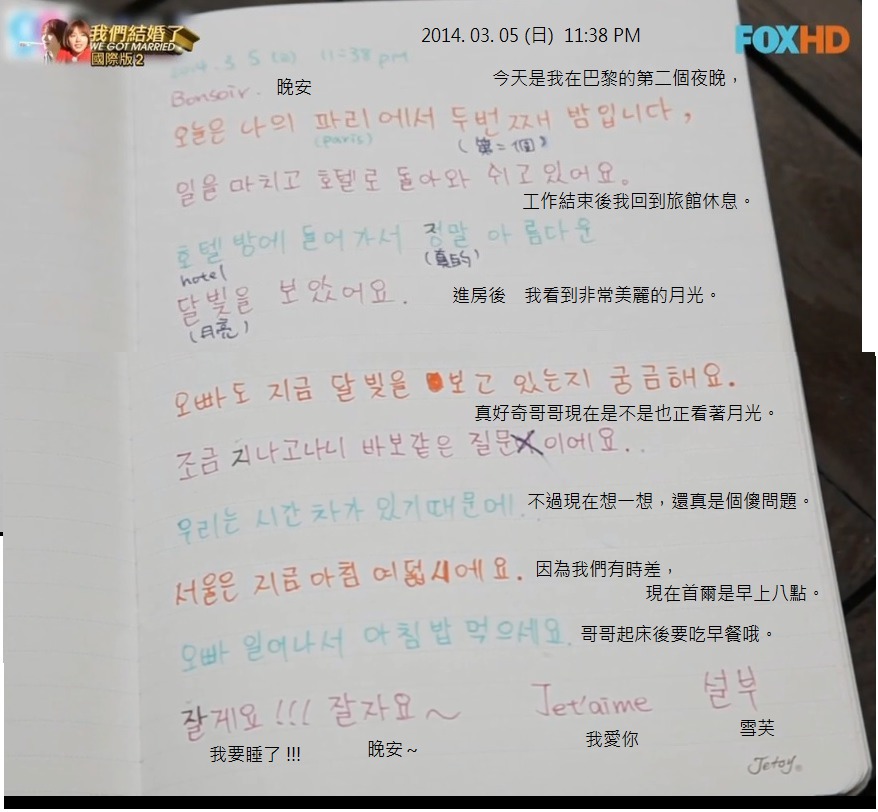 我們結婚了
WE GOT MARRIED
國際版2
FOXHD
2014. 03. 05 (日) 11:38 PM
2014. 3. 5 11:38 pm
Bonsoir. 晚安
今天是我在巴黎的第二個夜晚，
오늘은 나의 파리에서 두번째 밤입니다,
(paris) (第二個)
일을 마치고 호텔로 돌아와 쉬고있어요.
工作結束後我回到旅館休息。
호텔 방에 들어가서 정말 아름다운
hotel (真的)
달빛을 보았어요. 進房後 我看到非常美麗的月光。
(月亮)
오빠도 지금 달빛을 보고 있는지 궁금해요.
真好奇哥哥現在是不是也正看著月光。
조금 지나고나니 바보같은 질문이에요..
우리는 시간 차가 있기때문에.. 不過現在想一想，還真是個傻問題。
서울은 지금 아침 여덟시에요. 因為我們有時差，
現在首爾是早上八點。
오빠 일어나서 아침밥 먹으세요. 哥哥起床後要吃早餐哦。
잘게요!!! 잘자요~ Je t'aime 설부
我要睡了!!! 晚安~ 我愛你 雪芙
Jetoy